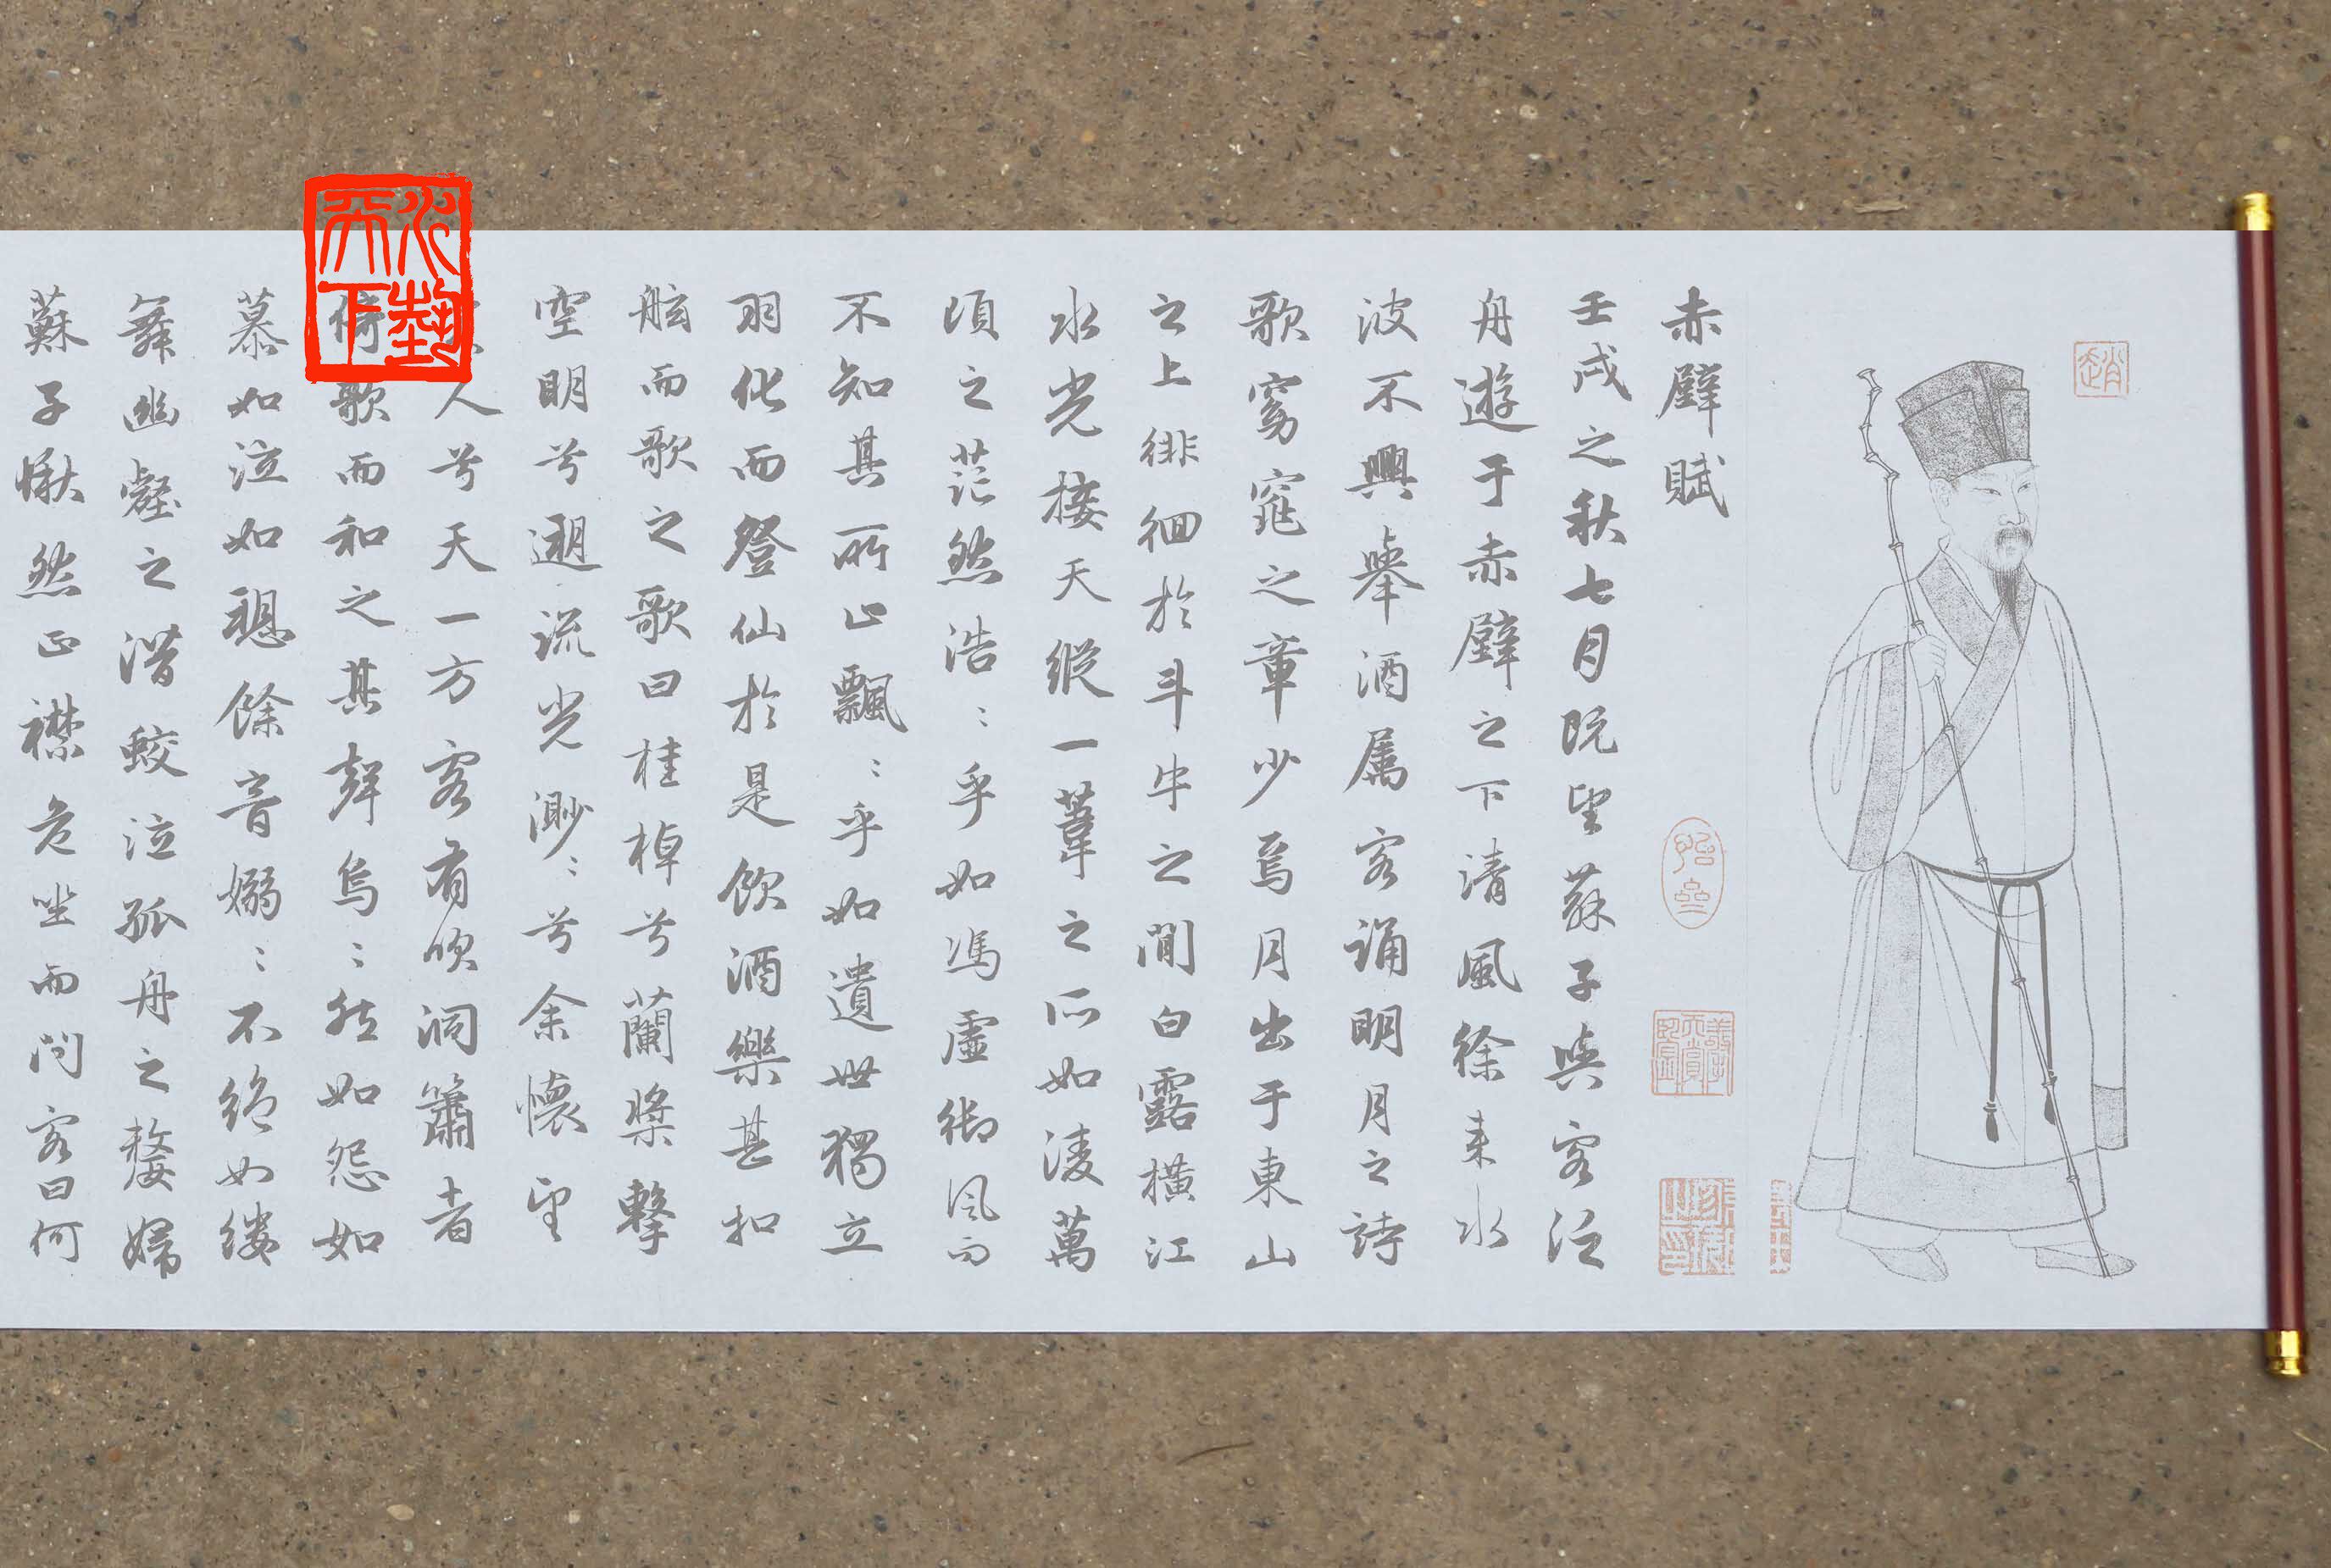 赤壁賦
壬戌之秋七月既望蘇子與客泛
舟遊于赤壁之下清風徐来水
波不興舉酒属客誦明月之詩
歌窈窕之章少焉月出于東山
之上徘徊於斗牛之間白露橫江
水光接天縱一葦之所如淩萬
頃之茫然浩:乎如馮虛御風而
不知其所止飄:乎如遺世獨立
羽化而登仙於是飲酒樂甚扣
舷而歌之歌曰桂棹兮蘭槳擊
空明兮遡流光渺:兮余懷望
人兮天一方客有吹洞簫者
倚歌而和之其聲烏:然如怨如
慕如泣如遡餘音嫋:不絕如縷
舞幽壑之潛蛟泣孤舟之嫠婦
蘇子愀然正襟危坐而問客曰何
趙